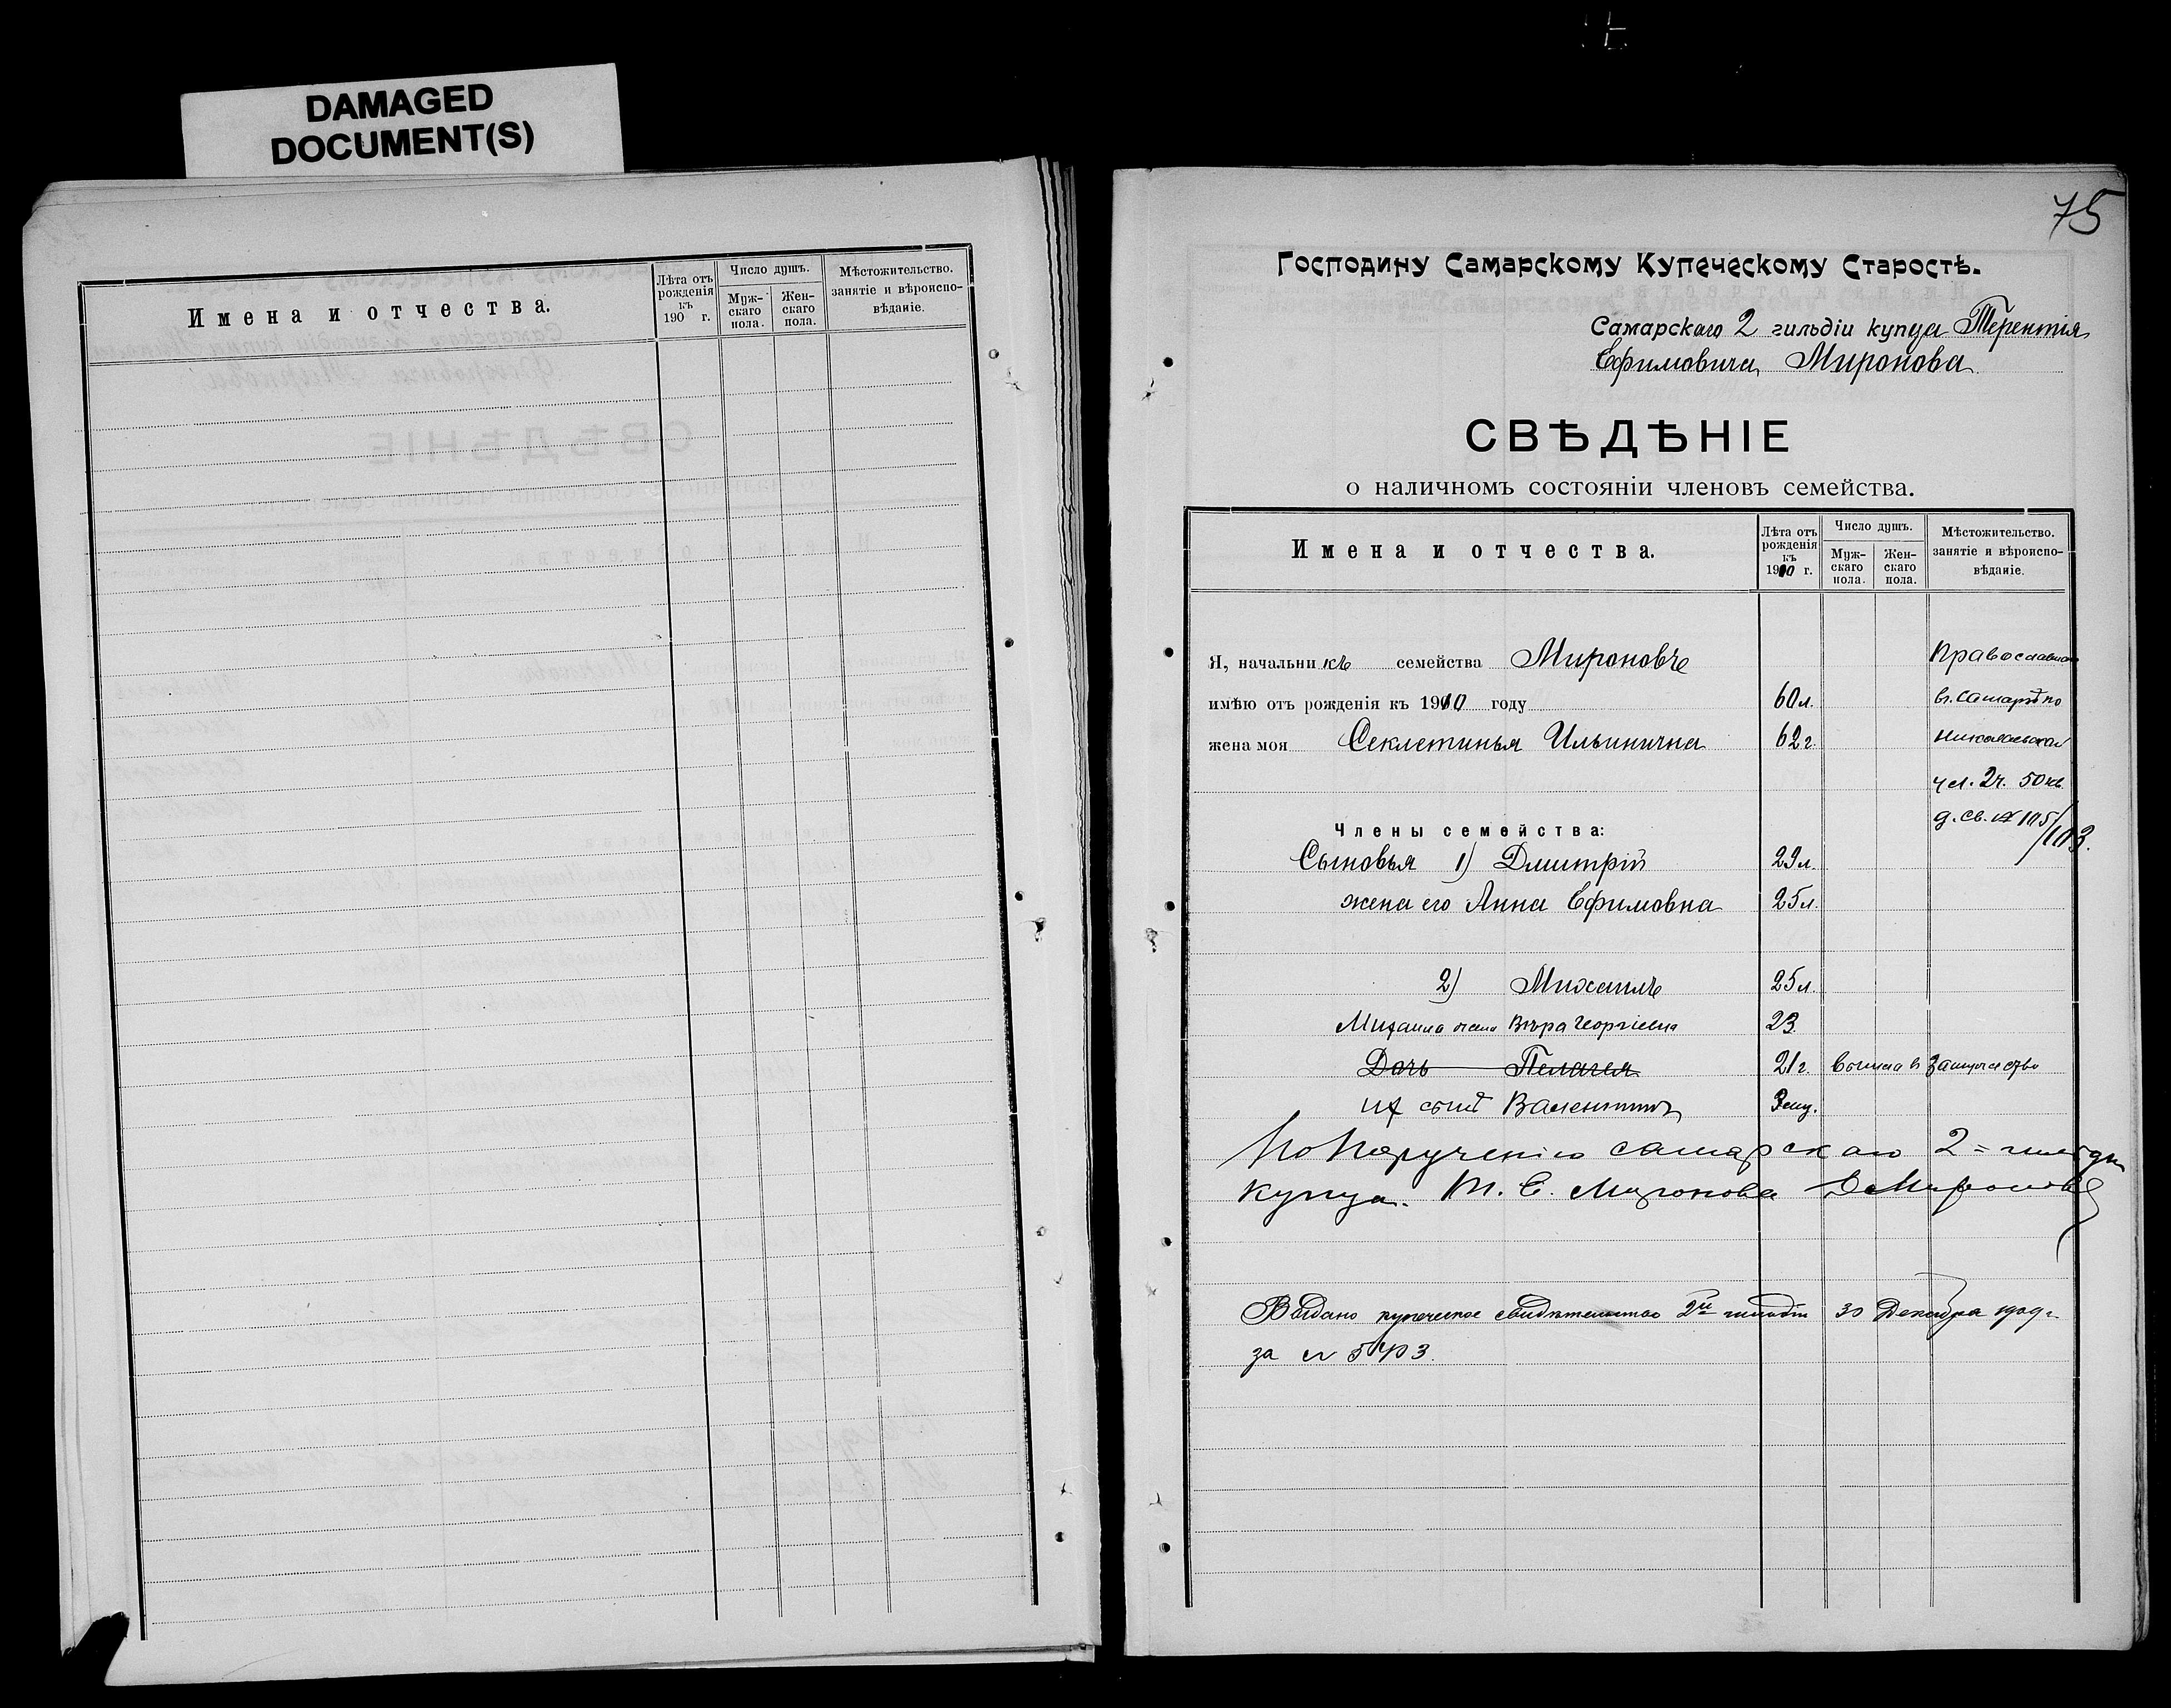 DAMAGED
DOCUMENT(S)
Имена и отчества.
Лѣта отъ рожденія къ 190 г.
Число душъ.
Муж-скаго пола.
Жен-скаго пола.
Мѣстожительство. занятіе и вѣроиспо-вѣданіе.
75
Господину Самарскому Купеческому Старостѣ.
Самарскаго 2 гильдіи купца Терентія
Ефимовича Миронова
СВѢДѢНІЕ
о наличномъ состояніи членовъ семейства.
Имена и отчества.
Лѣта отъ рожденія къ 1910 г.
Число душъ.
Муж-скаго пола.
Жен-скаго пола.
Мѣстожительство. занятіе и вѣроиспо-вѣданіе.
Я, начальникъ семейства Мироновъ Православ
имѣю отъ рожденія къ 1910 году 60 л. въ Самарѣ по
жена моя Секлетинья Ильинична 62 г. Николаевской
ул. 2 ч. 50 кв.
д. св. № 105/103.
Члены семейства:
Сыновья 1) Дмитрій 29 л.
жена его Анна Ефимовна 25 л.
2) Михаилъ 25 л.
Михаила жена Вѣра Георгіевна 23
Дочь Пелагея 21 г. Вышла в замужество
их сынъ Валентинъ 3 мц.
По порученію самарскаго 2= гильдіи
купца. Т. Е. Миронова Д Мироновъ
Выдано купеческое свидѣтельство 2й гильдіи 30 Декабря 1909 г.
за № 5403.